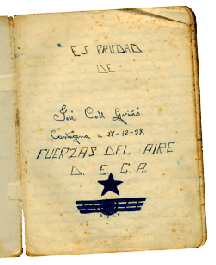 ES PROPIDAD
DE
José Coll
Cartagena a 24-12-37.
FUERZAS DEL AIRE
D. E C A.